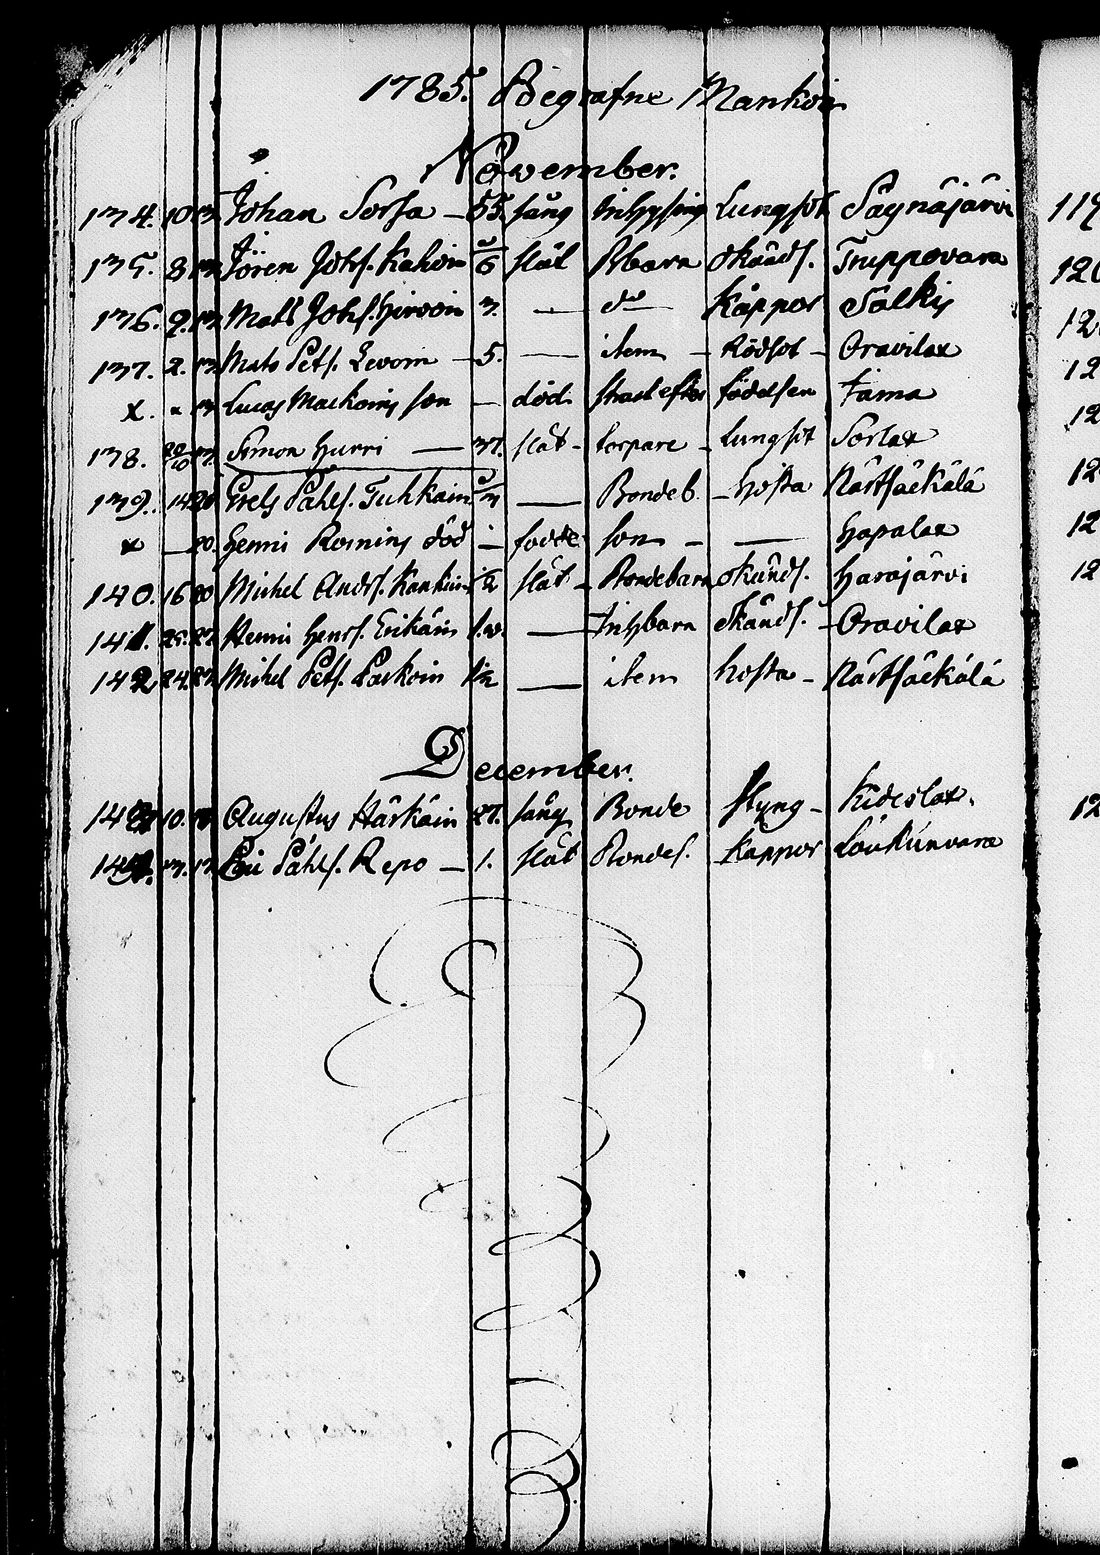 1785. Begrafne Mankön
November.
134. 10 13 Johan Sorsa — 55. sång Inhysing Lungsot Säynäjärvi
135. 8 13 Jören Johs. Kahoin 6 slät Bbarn okänds. Truppovara
136. 9. 13 Matts Johs. Hirvoin 3. — do — Kåppor Sälkis
137. 2. 13 Mats Pets. Levoin — 5. — item — Rödsot — Oravilax
x. " 13 Lucas Mackoins son — död strast efter födelsen Tåma
138. 22/10 13. Simon Hurri — 37. slät — torpare — Lungsot Sorlax
139. 14 20 Grels Påhls. Tuhkain — Bondeb. — hosta Närtsäckälä
x — 20. Henric Romins död — födde son — — Hapalax
140. 16 20 Michel Andrs. Kankuin 1/2 slät — Bondebarn okänds. Harajärvi
141. 25. 27. Henric Henrs. Erikäin 1.w. — Inhbarn okänds. — Oravilax
142 24. 27. Michel Pets. Parkoin 1/2 — item hosta — Närtsäckälä
December.
143 10. Augustus Härkäin 27. sång Bonde styng — Kideslax.
144. 13. 17. Påhls. Repo — 1. slät Bondes. Kåppor Loukunvara